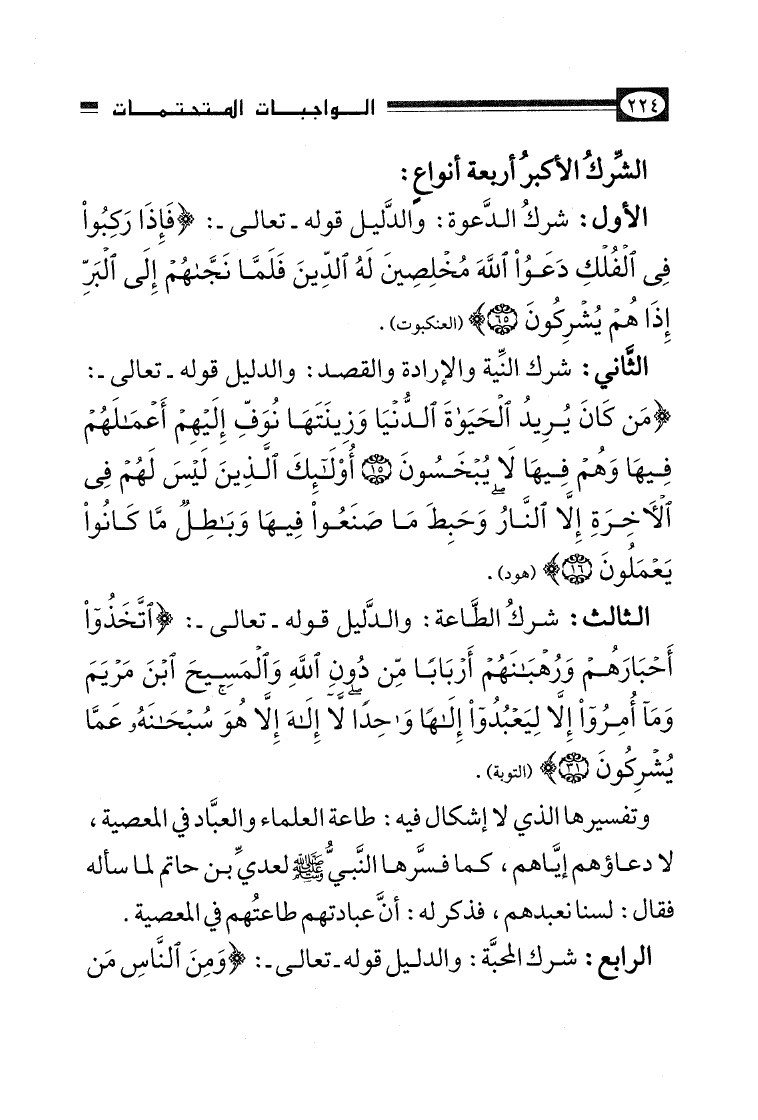 ٢٢٤ الـواجبـات المتحتمـات
الشِّركُ الأكبرُ أربعة أنواعٍ:
الأول: شركُ الدَّعوة: والدَّليل قوله ـ تعالى ـ: ﴿فَإِذَا رَكِبُوا۟
فِى ٱلْفُلْكِ دَعَوُا۟ ٱللَّهَ مُخْلِصِينَ لَهُ ٱلدِّينَ فَلَمَّا نَجَّىٰهُمْ إِلَى ٱلْبَرِّ
إِذَا هُمْ يُشْرِكُونَ ٦٥﴾ (العنكبوت).
الثَّاني: شرك النِّية والإرادة والقصد: والدليل قوله ـ تعالى ـ:
﴿مَن كَانَ يُرِيدُ ٱلْحَيَوٰةَ ٱلدُّنْيَا وَزِينَتَهَا نُوَفِّ إِلَيْهِمْ أَعْمَـٰلَهُمْ
فِيهَا وَهُمْ فِيهَا لَا يُبْخَسُونَ ١٥ أُو۟لَـٰٓئِكَ ٱلَّذِينَ لَيْسَ لَهُمْ فِى
ٱلْـَٔاخِرَةِ إِلَّا ٱلنَّارُ ۖ وَحَبِطَ مَا صَنَعُوا۟ فِيهَا وَبَـٰطِلٌ مَّا كَانُوا۟
يَعْمَلُونَ ١٦﴾ (هود).
الثالث: شركُ الطَّاعة: والدَّليل قوله ـ تعالى ـ: ﴿ٱتَّخَذُوٓا۟
أَحْبَارَهُمْ وَرُهْبَـٰنَهُمْ أَرْبَابًا مِّن دُونِ ٱللَّهِ وَٱلْمَسِيحَ ٱبْنَ مَرْيَمَ
وَمَآ أُمِرُوٓا۟ إِلَّا لِيَعْبُدُوٓا۟ إِلَـٰهًا وَٰحِدًا ۖ لَّآ إِلَـٰهَ إِلَّا هُوَ ۚ سُبْحَـٰنَهُۥ عَمَّا
يُشْرِكُونَ ٣١﴾ (التوبة).
وتفسيرها الذي لا إشكال فيه: طاعة العلماء والعبَّاد في المعصية،
لا دعاؤهم إيَّاهم، كما فسَّرها النَّبيُّ ﷺ لعديِّ بن حاتم لما سأله
فقال: لسنا نعبدهم، فذكر له: أنَّ عبادتهم طاعتُهم في المعصية.
الرابع: شرك المحبَّة: والدليل قوله ـ تعالى ـ: ﴿وَمِنَ ٱلنَّاسِ مَن